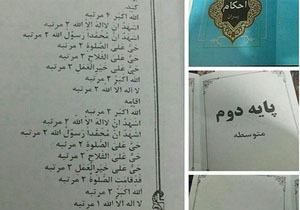 کبد.
الله اکبر ۴ مرتبه
اشهد ان لااله الا الله ۲ مرتبه
اشهد ان محمدا رسول الله ۲ مرتبه
حی علی الصلوة ۲ مرتبه
حی علی الفلاح ۲ مرتبه
حی علی خیر العمل ۲ مرتبه
الله اکبر ۲ مرتبه
لا اله الا الله ۲ مرتبه
اقامه
الله اکبر ۲ مرتبه
اشهد ان لااله الا الله ۲ مرتبه
اشهد ان محمدا رسول الله ۲ مرتبه
حی علی الصلوة ۲ مرتبه
حی علی الفلاح ۲ مرتبه
حی علی خیر العمل ۲ مرتبه
قدقامت الصلوة ۲ مرتبه
الله اکبر ۲ مرتبه
لا اله الا الله ۱ مرتبه
احکام
پسران
پایه دوم
متوسطه